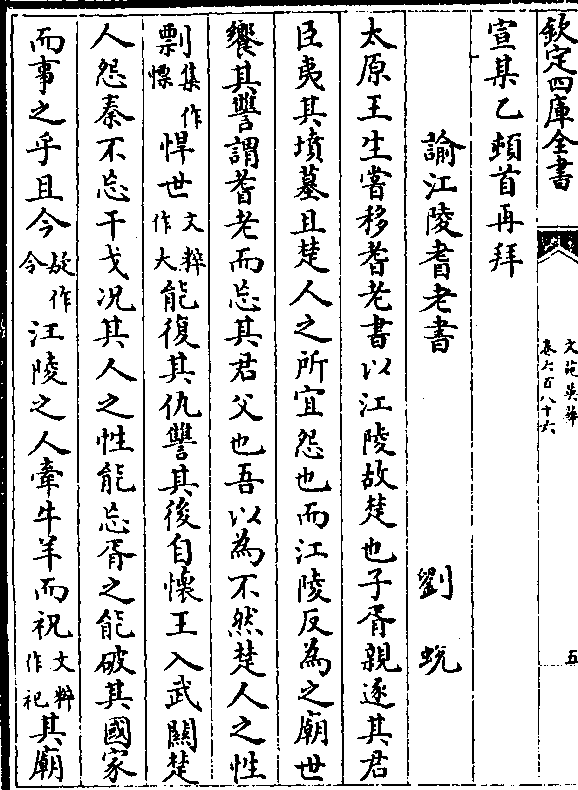 欽定四庫全書
文苑英華
卷六百八十六
五
宣某乙頓首再拜
諭江陵耆老書 劉蛻
太原王生嘗移耆老書以江陵故楚也子胥親逐其君
臣夷其墳墓且楚人之所宜怨也而江陵反為之廟世
饗其讐謂耆老而忘其君父也吾以為不然楚人之性
剽集作慓悍世文粹作大能復其仇讐其後自懷王入武關楚
人怨秦不忘干戈况其人之性能忘胥之能破其國家
而事之乎且今疑作令江陵之人牽牛羊而祝文粹作祀其廟